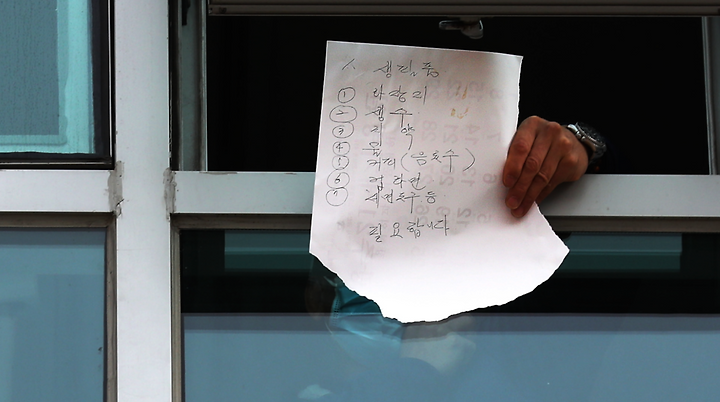 ※ 생필품
① 화장지
② 생수
③ 치약
④
⑤ 커피(음료수)
⑥ 컵라면
⑦ 세면도구 등
필요합니다